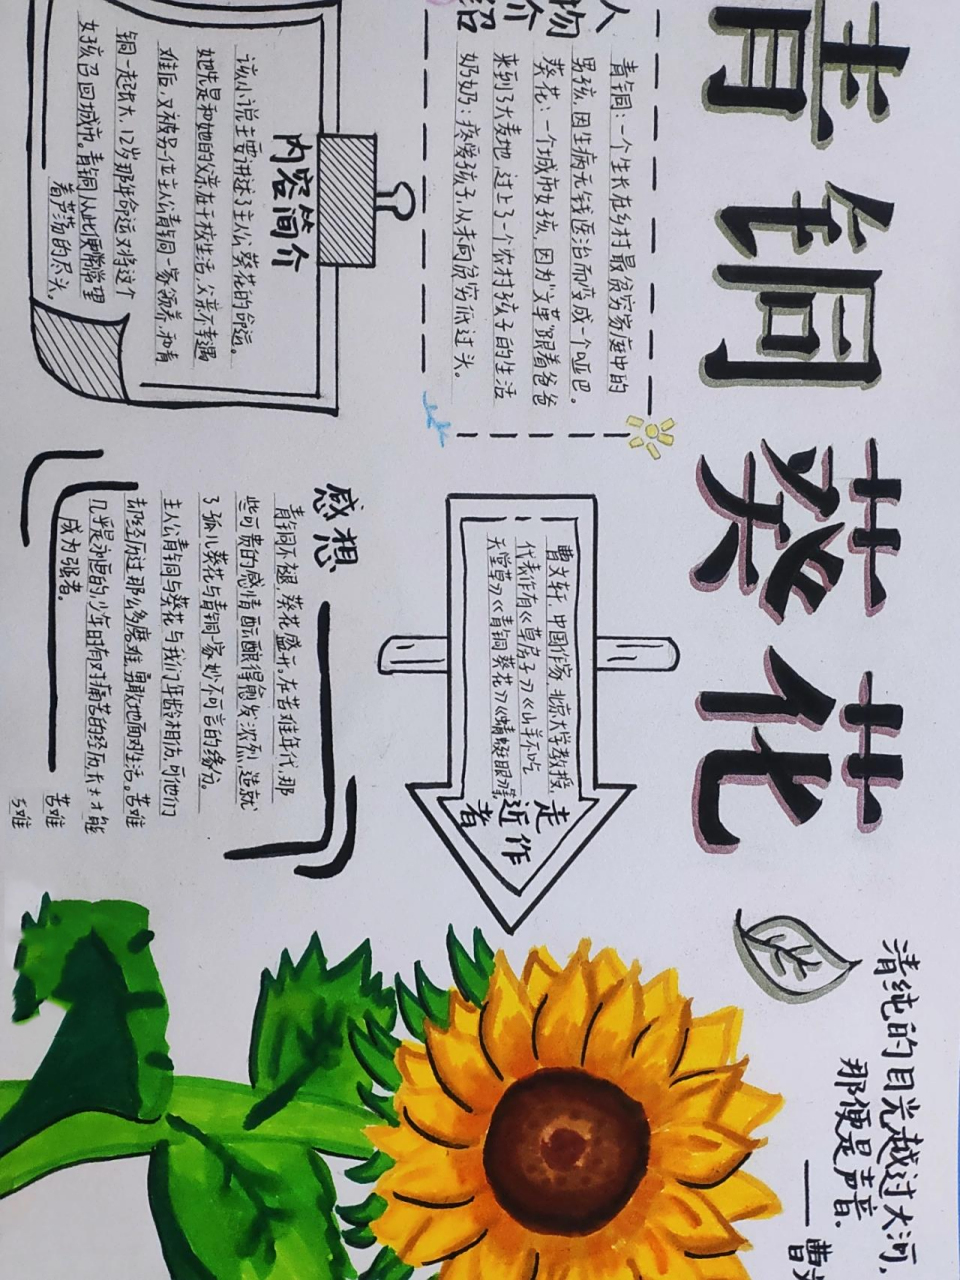 青铜葵花
人物介绍
青铜：一个生长在乡村最贫穷家庭中的
男孩,因生病无钱医治而变成一个哑巴。
葵花：一个城市女孩,因为“文革”跟着爸爸
来到了大麦地,过上了一个农村孩子的生活
奶奶：疼爱孩子,从未向贫穷低过头。
内容简介
该小说主要讲述了主人公葵花的命运。
她先是和她的父亲在干校生活,父亲不幸遇
难后,又被另一位主人公青铜一家领养,和青
铜一起长大,12岁那年命运又将这个
女孩召回城市。青铜从此更常常望
着芦荡的尽头。
清纯的目光越过大河,
那便是声音。
——曹文
走近作者
曹文轩,中国作家,北京大学教授,
代表作有《草房子》《山羊不吃
天堂草》《青铜葵花》《蜻蜓眼》等
感想
青铜不褪,葵花盛开。在苦难年代,那
些可贵的感情酝酿得愈发浓烈,造就
了孤儿葵花与青铜一家妙不可言的缘分。
主人公青铜与葵花与我们年龄相仿,可他们
却经历过那么多磨难,勇敢地面对生活。苦难
几乎是永恒的,少年时有对痛苦的经历,未来才能
成为强者。
苦难